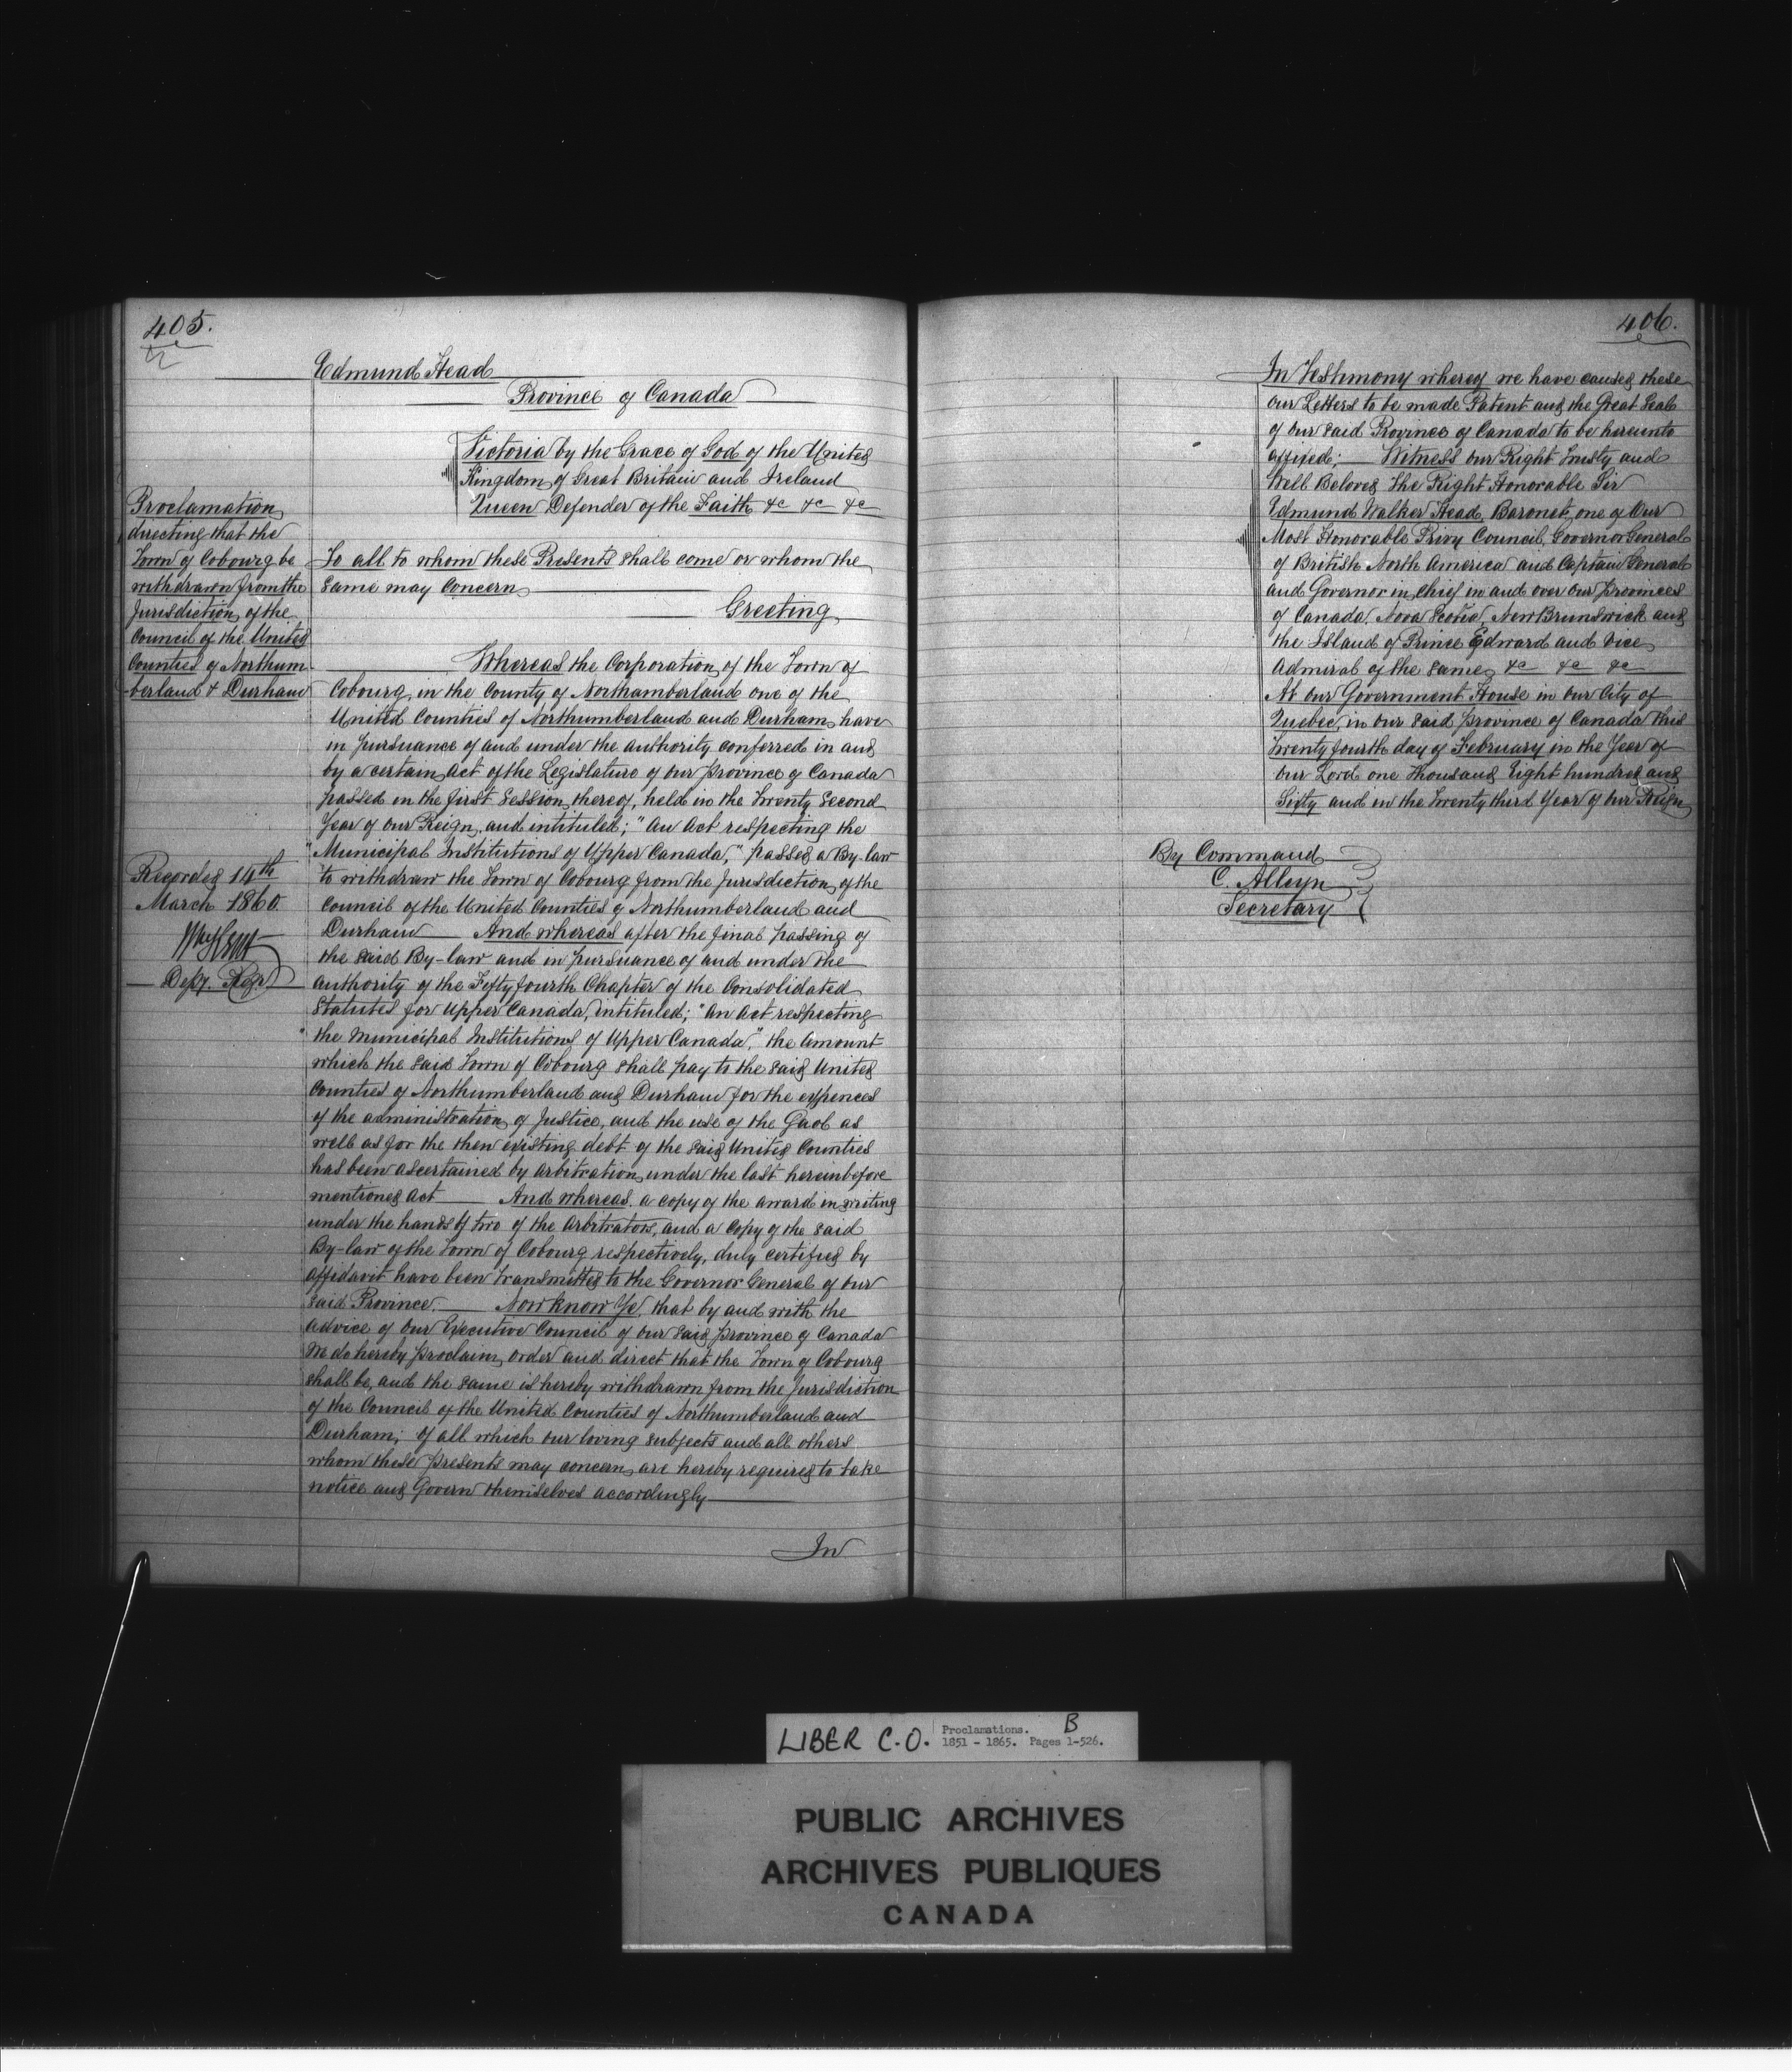 405.
Edmund Head
Province of Canada
Victoria by the Grace of God of the United
Kingdom of Great Britain and Ireland
Queen Defender of the Faith &c &c &c
Proclamation
directing that the
Town of Cobourg be
withdrawn from the
Jurisdiction of the
Council of the United
Counties of Northum
-berland & Durham
To all to whom these Presents shall come or whom the
same may Concern
Greeting
Whereas the Corporation of the Town of
Cobourg, in the County of Northamberland one of the
United Counties of Northumberland and Durham, have
in pursuance of and under the authority conferred in and
by a certain Act of the Legislature of our province of Canada
passed in the first Session thereof, held in the Twenty Second
Year of our Reign, and intituled; "An Act respecting the
"Municipal Institutions of Upper Canada," passed a By-law
to withdraw the Town of Cobourg from the Jurisdiction of the
Council of the United Counties of Northumberland and
Durham And whereas after the final passing of
the said By-law and in pursuance of and under the
authority of the Fifty fourth Chapter of the Consolidated
Statutes for Upper Canada, intituled; "An Act respecting
"the Municipal Institutions of Upper Canada", the Amount
which the said Town of Cobourg shall pay to the said United
Counties of Northumberland and Durham for the expences
of the administration of Justice, and the use of the Gaol as
well as for the then existing debt of the said United Counties
has been ascertained by arbitration, under the last hereinbefore
mentioned Act And whereas a copy of the award in writing
under the hands of two of the Arbitrators, and a Copy of the said
By-law of the Town of Cobourg respectively, duly certified by
affidavit have been transmitted to the Governor General of our
said Province. Now know Ye, that by and with the
advice of Our Executive Council of our said province of Canada
We do hereby proclaim, order and direct that the Town of Cobourg
shall be, and the same is hereby withdrawn from the Jurisdiction
of the Council of the United Counties of Northumberland and
Durham; of all which our loving subjects and all others
whom these presents may concern, are hereby required to take
notice and Govern themselves accordingly
In
Recorded 14th
March 1860.
Depy. Regr
406.
In Testimony whereof we have caused these
our Letters to be made Patent and the Great Seal
of our said Province of Canada to be hereunto
affixed; Witness our Right Trusty and
Well Beloved The Right Honorable Sir
Edmund Walker Head, Baronet, one of Our
Most Honorable Privy Council, Governor General
of British North America and Captain General
and Governor in Chief in and over our provinces
of Canada, Nova Scotia, New Brunswick and
the Island of Prince Edward and Vice
Admiral of the same &c &c &c
At our Government House in our City of
Quebec, in our said province of Canada this
Twenty fourth day of February in the Year of
our Lord one thousand Eight hundred and
Sixty and in the Twenty third Year of Our Reign
By Command
C. Alleyn
Secretary
LIBER C.O.
Proclamations. B
1851 - 1865. Pages 1-526.
PUBLIC ARCHIVES
ARCHIVES PUBLIQUES
CANADA